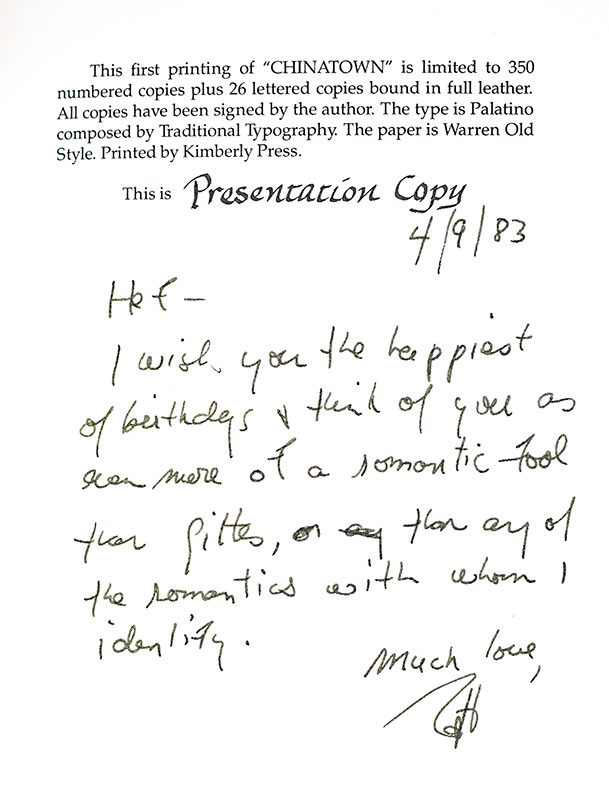 This first printing of “CHINATOWN” is limited to 350
numbered copies plus 26 lettered copies bound in full leather.
All copies have been signed by the author. The type is Palatino
composed by Traditional Typography. The paper is Warren Old
Style. Printed by Kimberly Press.
This is Presentation Copy
4/9/83
I wish you the happiest
of birthdays & think of you as
even more of a romantic fool
than Gittes, or than any of
the romantics with whom I
identify.
Much love,